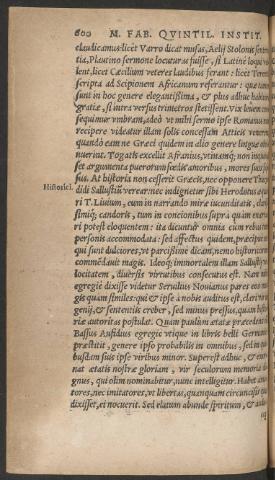 600 M. FAB. QVINTIL. INSTIT.
claudicamus: licet Varro dicat musas, Aelij Stolonis senten
tia, Plautino sermone locuturas fuisse, si Latine loqui vel
lent, licet Caecilium veteres laudibus ferant: licet Terentij
scripta ad Scipionem Africanum referantur: quae tamen
sunt in hoc genere elegantissima, & plus adhuc habitura
gratiae, si intra versus trimetros stetissent. Vix leuem con
sequimur vmbram, adeò vt mihi sermo ipse Romanus non
recipere videatur illam solis concessam Atticis venerem,
quando eam ne Graeci quidem in alio genere linguae obti
nuerint. Togatis excellit Afranius, vtinámq; non inquinas
set argumenta puerorum foedis amoribus, mores suos fas
sus. At historia non cesserit Graecis, nec opponere Thucy
Historici.
didi Sallustiũ verear: nec indignetur sibi Herodotus aequa
ri T. Liuium, cum in narrando mirae iucunditatis, claris
simiq; candoris, tum in concionibus supra quàm enarra
ri potest eloquentem: ita dicuntur omnia cum rebus tum
personis accommodata: sed affectus quidem, praecipue eos
qui sunt dulciores, vt parcissimè dicam, nemo historicorum
commẽdauit magis. Ideoq; immortalem illam Sallustij ve
locitatem, diuersis virtutibus consecutus est. Nam mihi
egregiè dixisse videtur Seruilius Nouianus pares eos ma
gis quàm similes: qui & ipse à nobis auditus est, clari vir in
genij, & sententiis creber, sed minus pressus, quàm histo
riae autoritas postulat. Quam paulùm aetate praecedens eũ
Bassus Aufidus egregiè vtique in libris belli Germanici
praestitit, genere ipso probabilis in omnibus, sed in qui
busdam suis ipse viribus minor. Superest adhuc, & exor
nat aetatis nostrae gloriam, vir saeculorum memoria di
gnus, qui olim nominabitur, nunc intelligitur. Habet ama
tores, nec imitatores, vt libertas, quanquam circuncisis quae
dixisset, ei nocuerit. Sed elatum abunde spiritum, & au